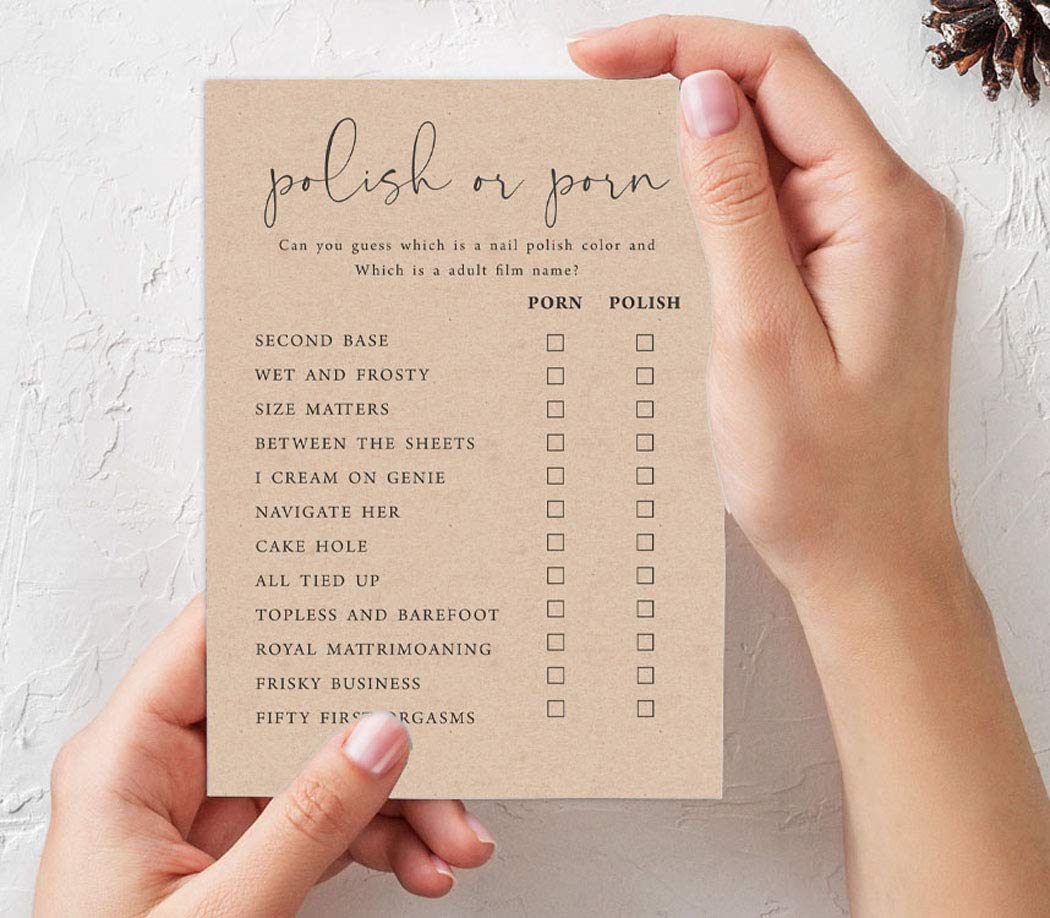 polish or porn
Can you guess which is a nail polish color and
Which is a adult film name?
PORN POLISH
SECOND BASE
WET AND FROSTY
SIZE MATTERS
BETWEEN THE SHEETS
I CREAM ON GENIE
NAVIGATE HER
CAKE HOLE
ALL TIED UP
TOPLESS AND BAREFOOT
ROYAL MATTRIMOANING
FRISKY BUSINESS
FIFTY FIRST ORGASMS